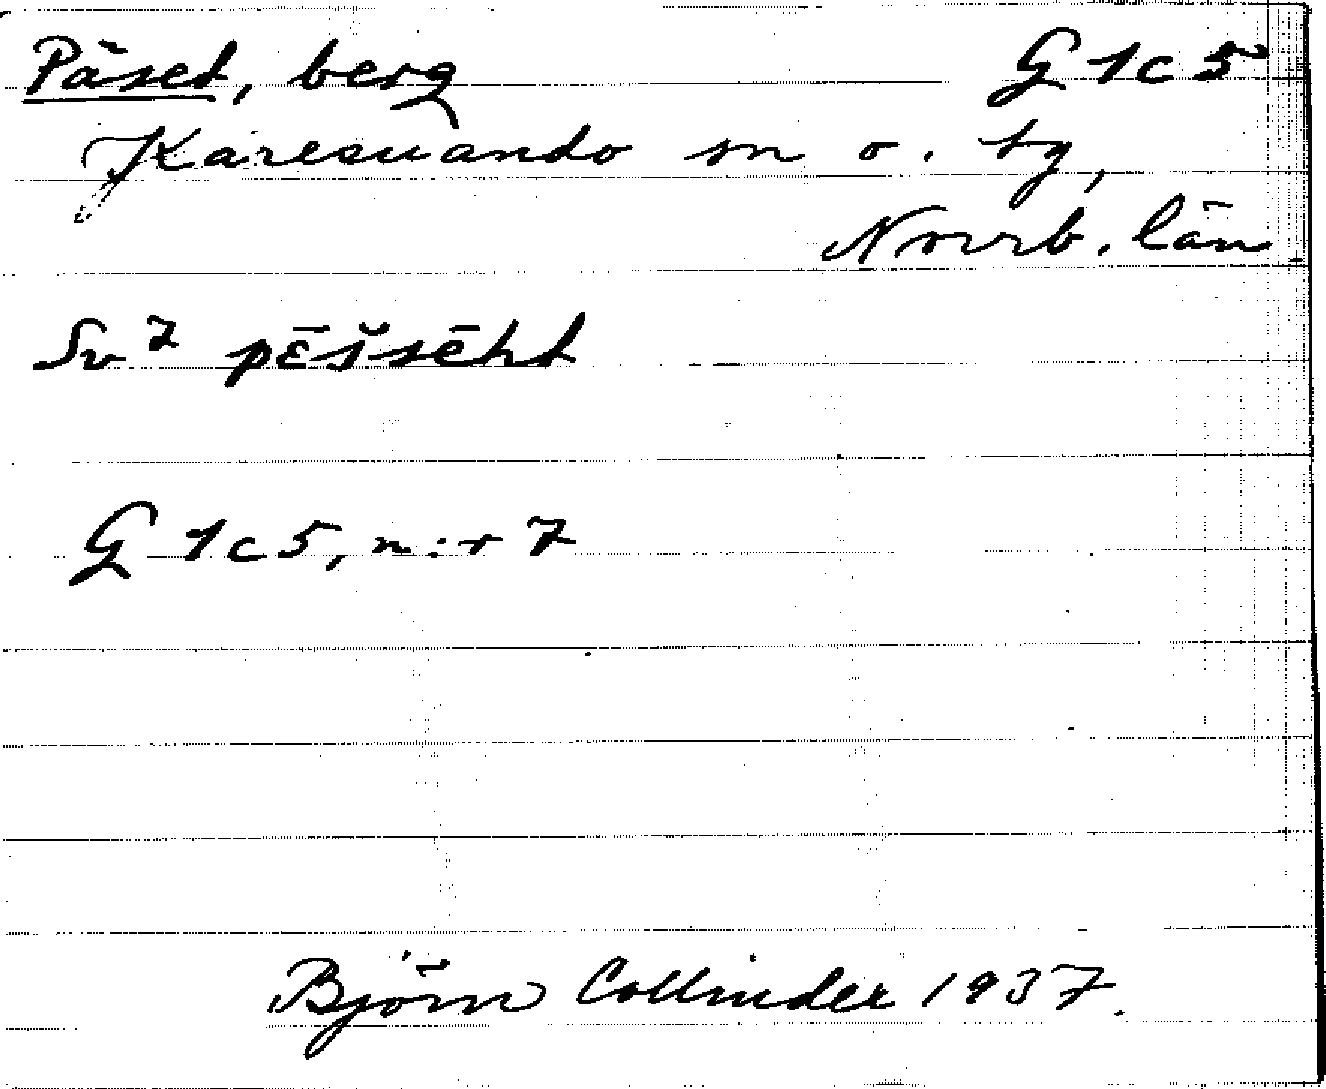 Päset, berg G 1c5
Karesuando sn o. tg,
Norrb. län
Sv 7 pēš̄sēht
G 1c5, n:r 7
Björn Collinder 1937.